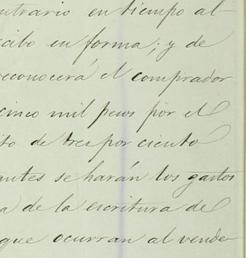 ntrario en tiempo al-
cibo en forma; y de
reconocerá el comprador
cinco mil pesos por el
to de tres por ciento
antes se harán los gastos
a de la escritura de
que ocurran al vende